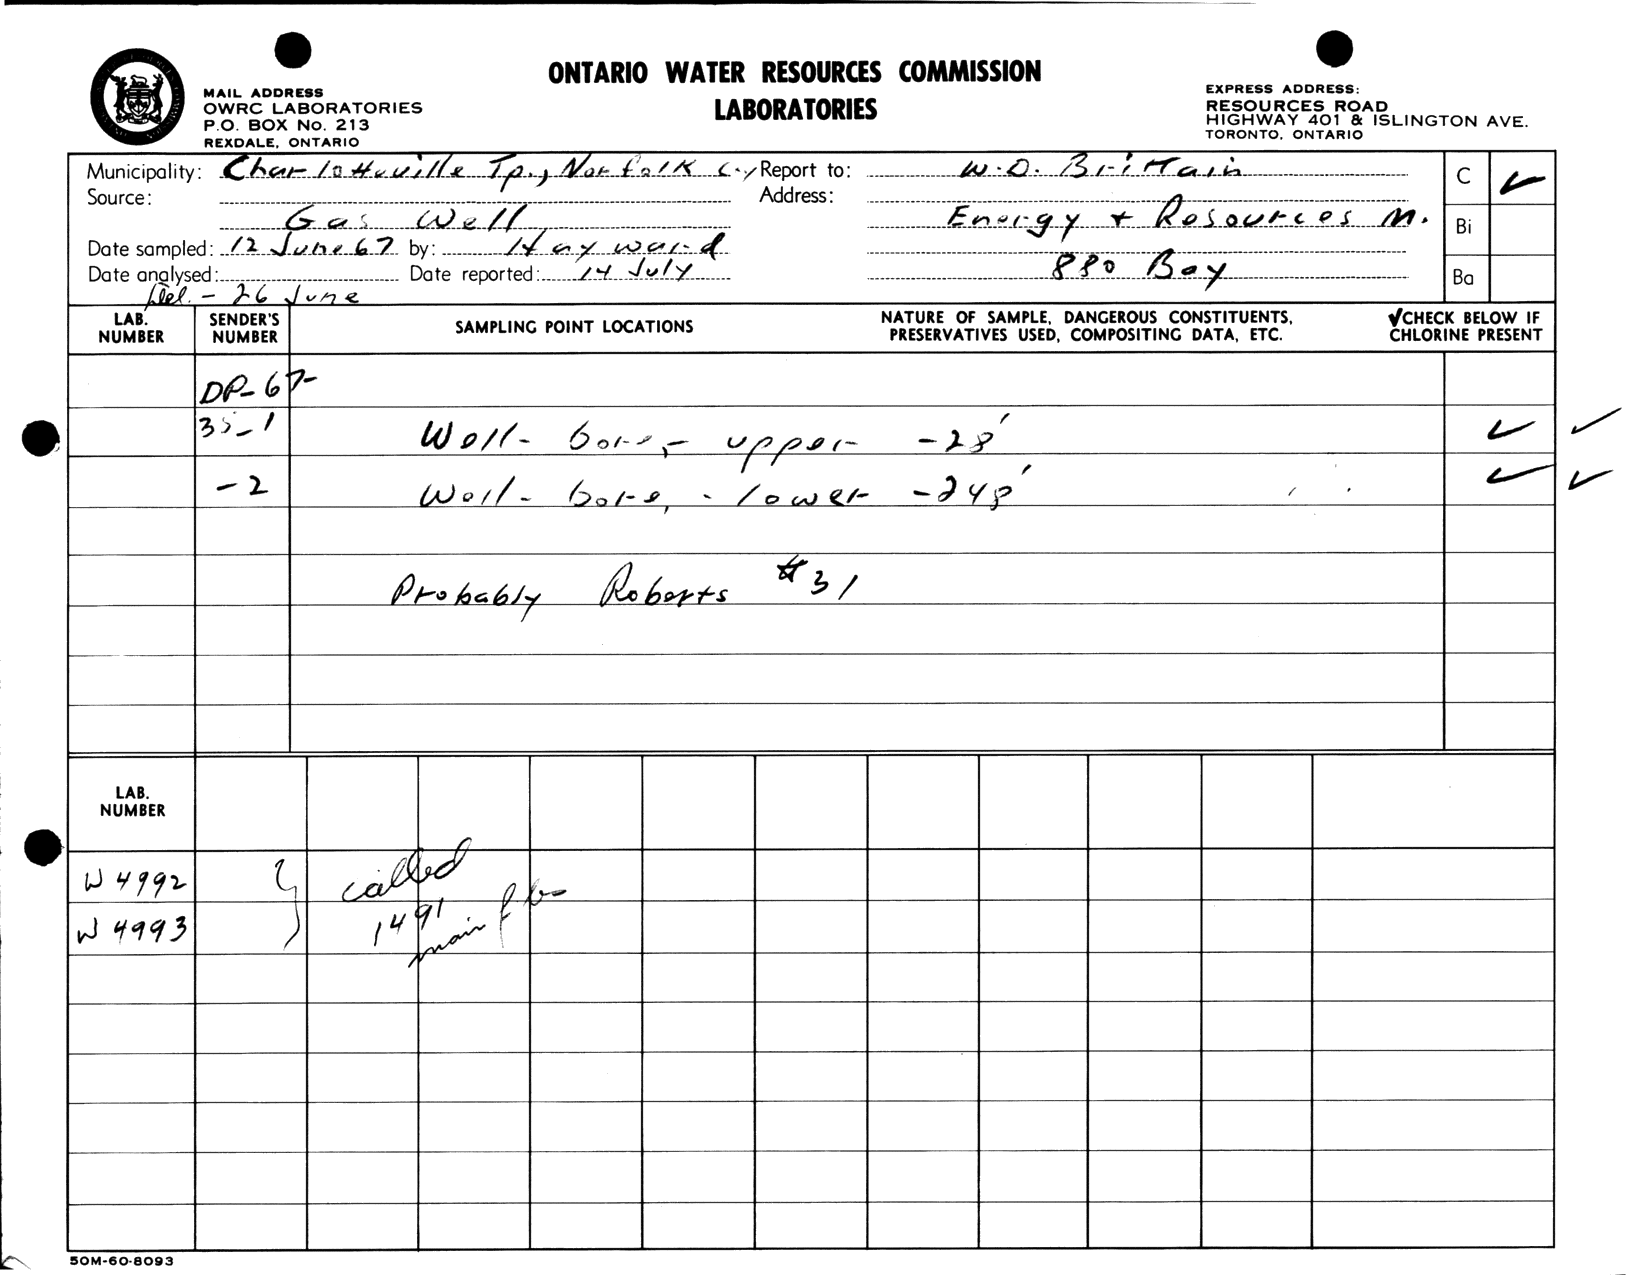 ONTARIO WATER RESOURCES COMMISSION
LABORATORIES
MAIL ADDRESS
OWRC LABORATORIES
P.O. BOX No. 213
REXDALE, ONTARIO
EXPRESS ADDRESS:
RESOURCES ROAD
HIGHWAY 401 & ISLINGTON AVE.
TORONTO, ONTARIO
Municipality: Charlotteville Tp., Norfolk Cy
Source: Gas Well
Date sampled: 12 June 67 by: Hayward
Date analysed: Date reported: 14 July
Del. - 26 June
Report to: W.D. Brittain
Address: Energy + Resources M.
880 Bay
C ✓
Bi
Ba
LAB. NUMBER SENDER'S NUMBER SAMPLING POINT LOCATIONS NATURE OF SAMPLE, DANGEROUS CONSTITUENTS, PRESERVATIVES USED, COMPOSITING DATA, ETC. ✓CHECK BELOW IF CHLORINE PRESENT
DP-67-
35-1 Well-bore, - upper -28' ✓ ✓
-2 Well-bore, - lower -248' ✓ ✓
Probably Roberts #31
LAB. NUMBER
W 4992 called
W 4993 1491
main
50M-60-8093